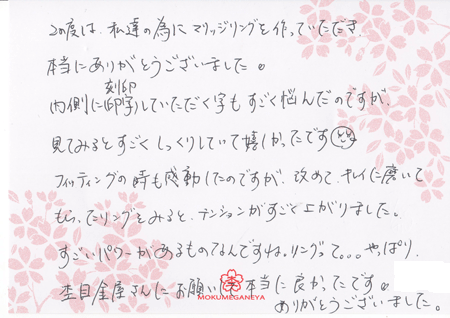 この度は、私達の為にマリッジリングを作っていただき
本当にありがとうございました。
刻印
内側に(印字)していただく字もすごく悩んだのですが、
見てみるとすごくしっくりしていて嬉しかったです
フィッティングの時も感動したのですが、改めてキレイに磨いて
もらったリングをみると、テンションがすごく上がりました。
すごいパワーがあるものなんですね。リングって。。。やっぱり、
杢目金屋さんにお願いし本当に良かったです。
MOKUMEGANEYA
ありがとうございました。